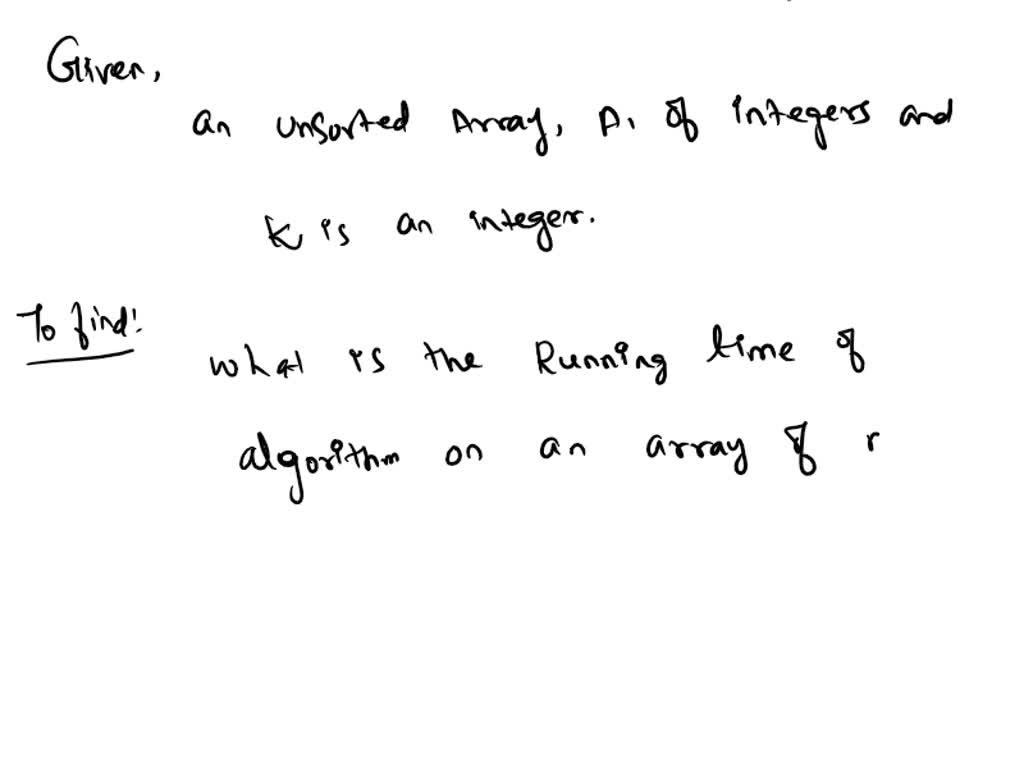 Given,
an unsorted Array, A, of integers and
K is an integer.
To find:
what is the Running time of
algorithm on an array of r